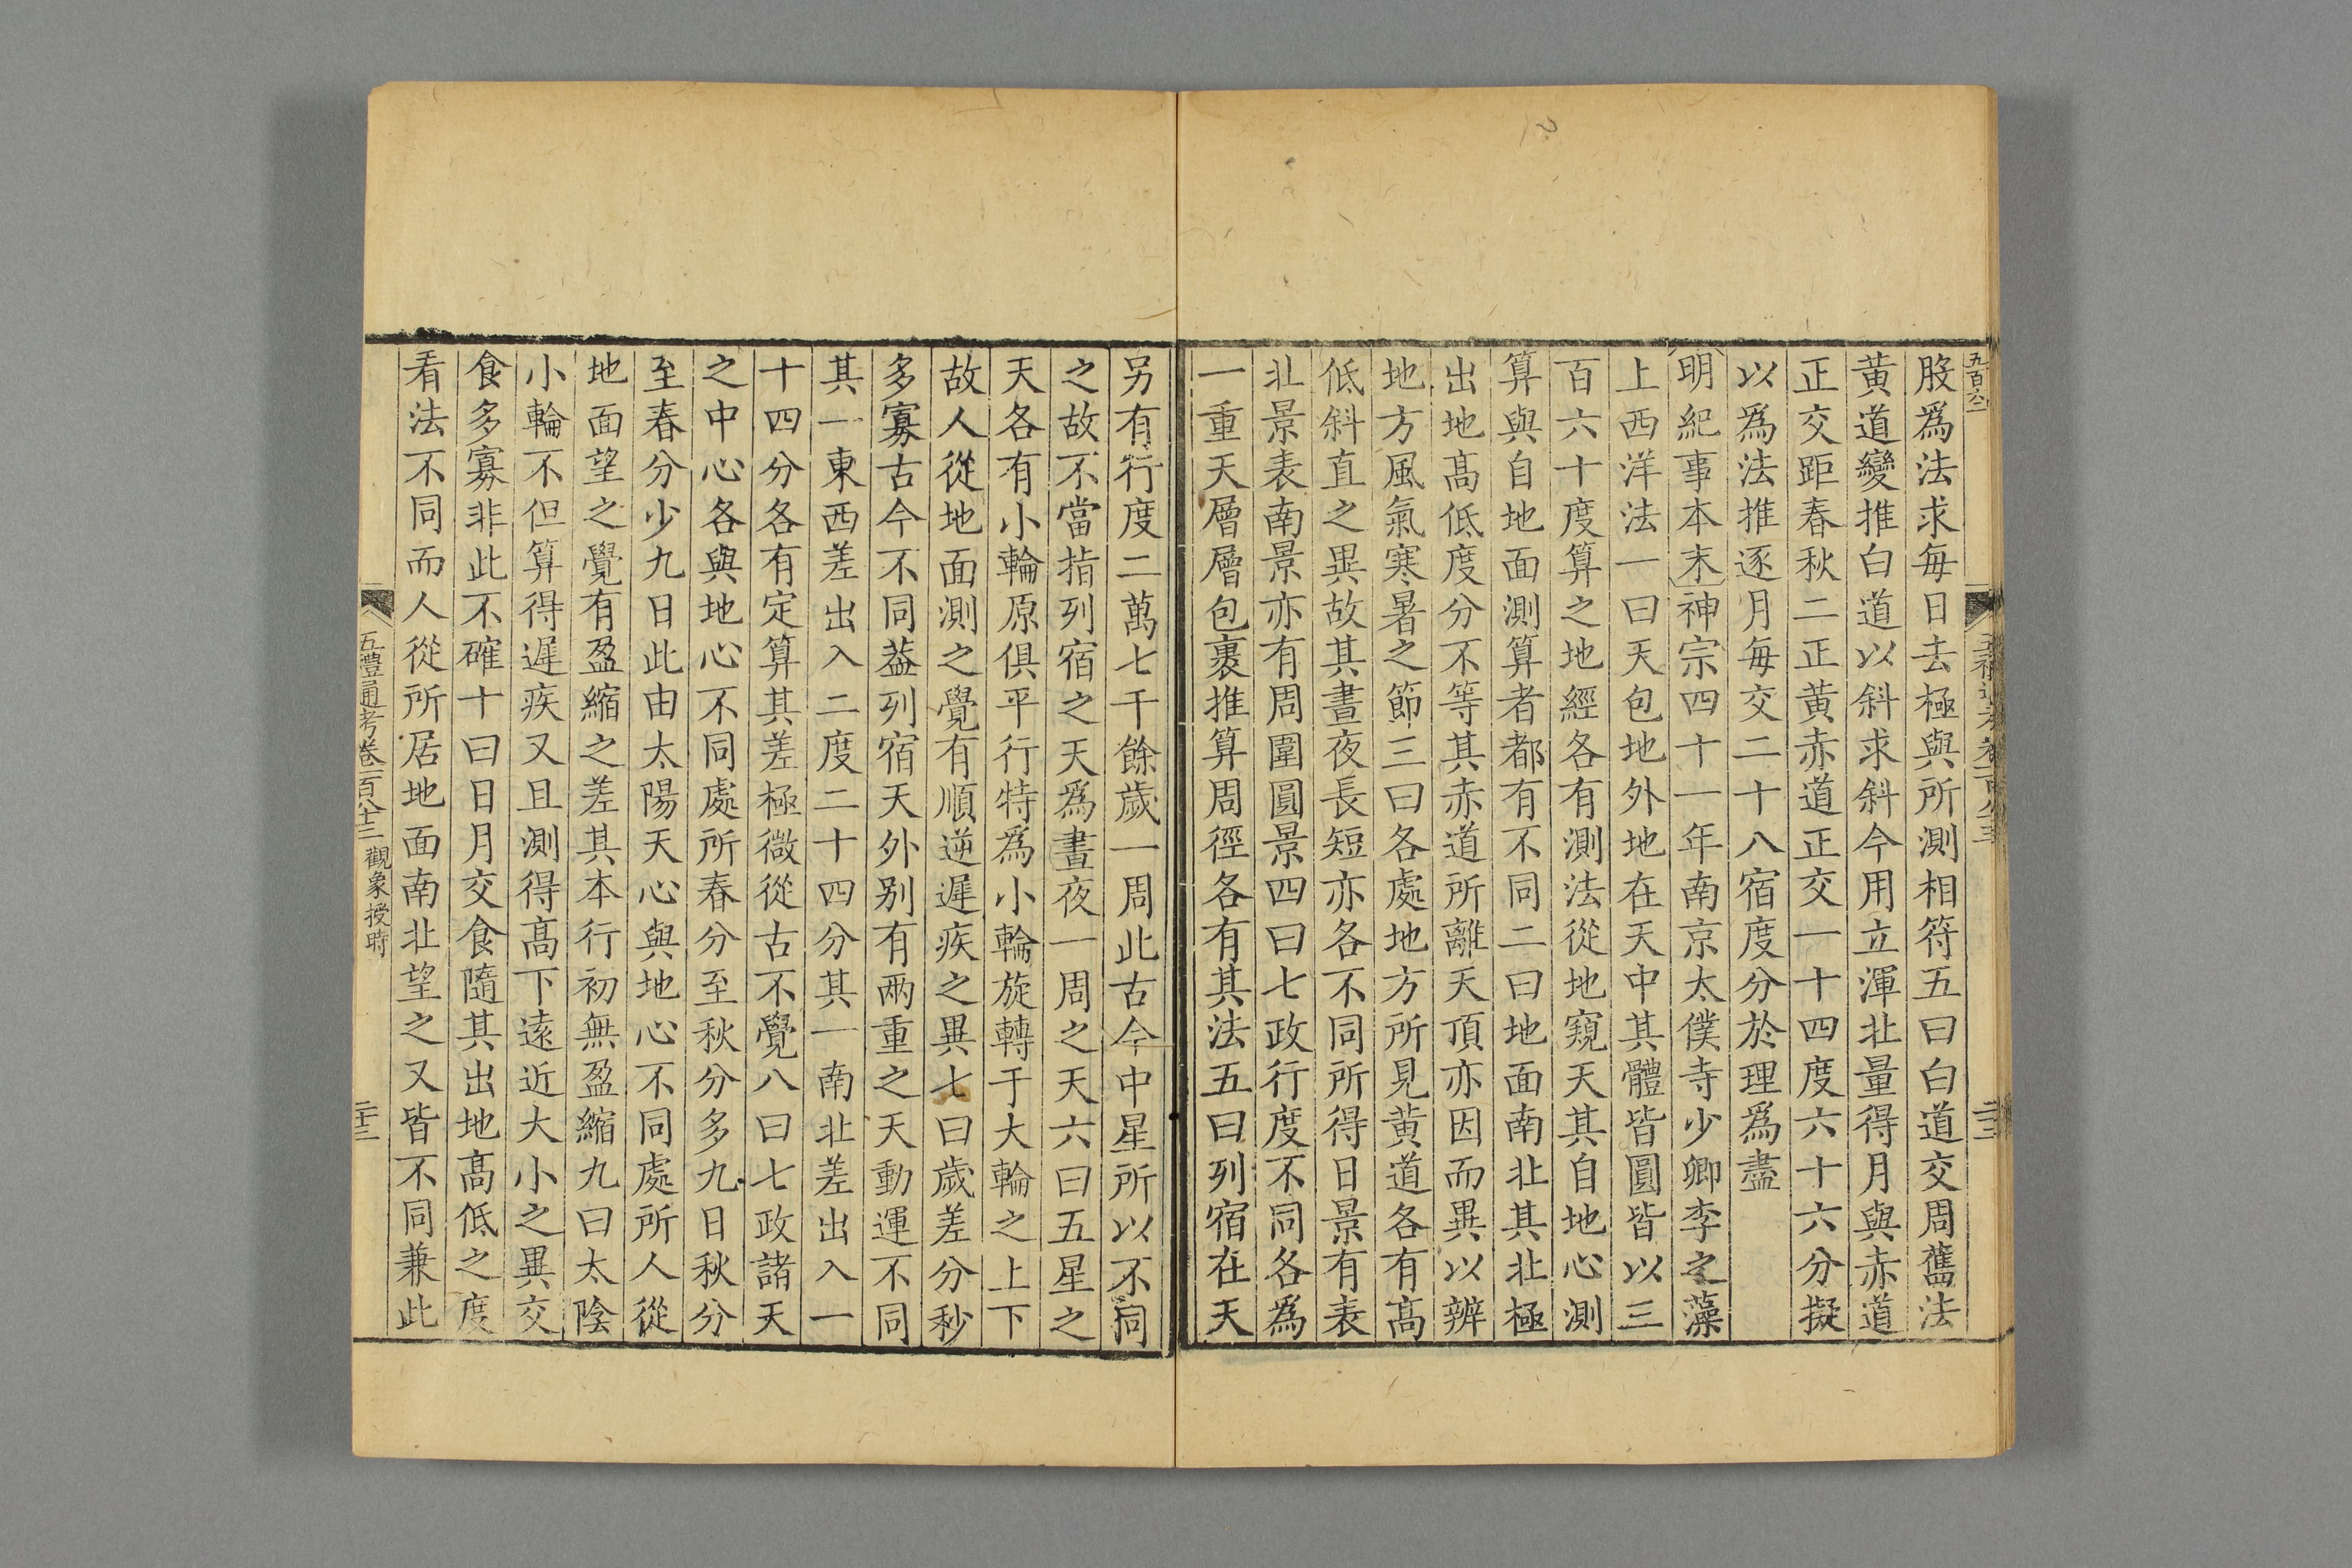 五百六一
股爲法求每日去極與所測相符五曰白道交周舊法
黃道變推白道以斜求斜今用立渾北量得月與赤道
正交距春秋二正黃赤道正交一十四度六十六分擬
以爲法推逐月每交二十八宿度分於理爲盡
明紀事本末神宗四十一年南京太僕寺少卿李之藻
上西洋法一曰天包地外地在天中其體皆圓皆以三
百六十度算之地經各有測法從地窺天其自地心測
算與自地面測算者都有不同二曰地面南北其北極
出地高低度分不等其赤道所離天頂亦因而異以辨
地方風氣寒暑之節三曰各處地方所見黃道各有高
低斜直之異故其晝夜長短亦各不同所得日景有表
北景表南景亦有周圍圓景四曰七政行度不同各爲
一重天層層包裹推算周徑各有其法五曰列宿在天
另有行度二萬七千餘歲一周此古今中星所以不同
之故不當指列宿之天爲晝夜一周之天六曰五星之
天各有小輪原俱平行特爲小輪旋轉于大輪之上下
故人從地面測之覺有順逆遲疾之異七曰歲差分秒
多寡古今不同葢列宿天外别有兩重之天動運不同
其一東西差出入二度二十四分其一南北差出入一
十四分各有定算其差極微從古不覺八曰七政諸天
之中心各與地心不同處所春分至秋分多九日秋分
至春分少九日此由太陽天心與地心不同處所人從
地面望之覺有盈縮之差其本行初無盈縮九曰太陰
小輪不但算得遲疾又且測得高下遠近大小之異交
食多寡非此不確十曰日月交食隨其出地高低之度
看法不同而人從所居地面南北望之又皆不同兼此
五禮通考卷一百八十三 觀象授時
二十三